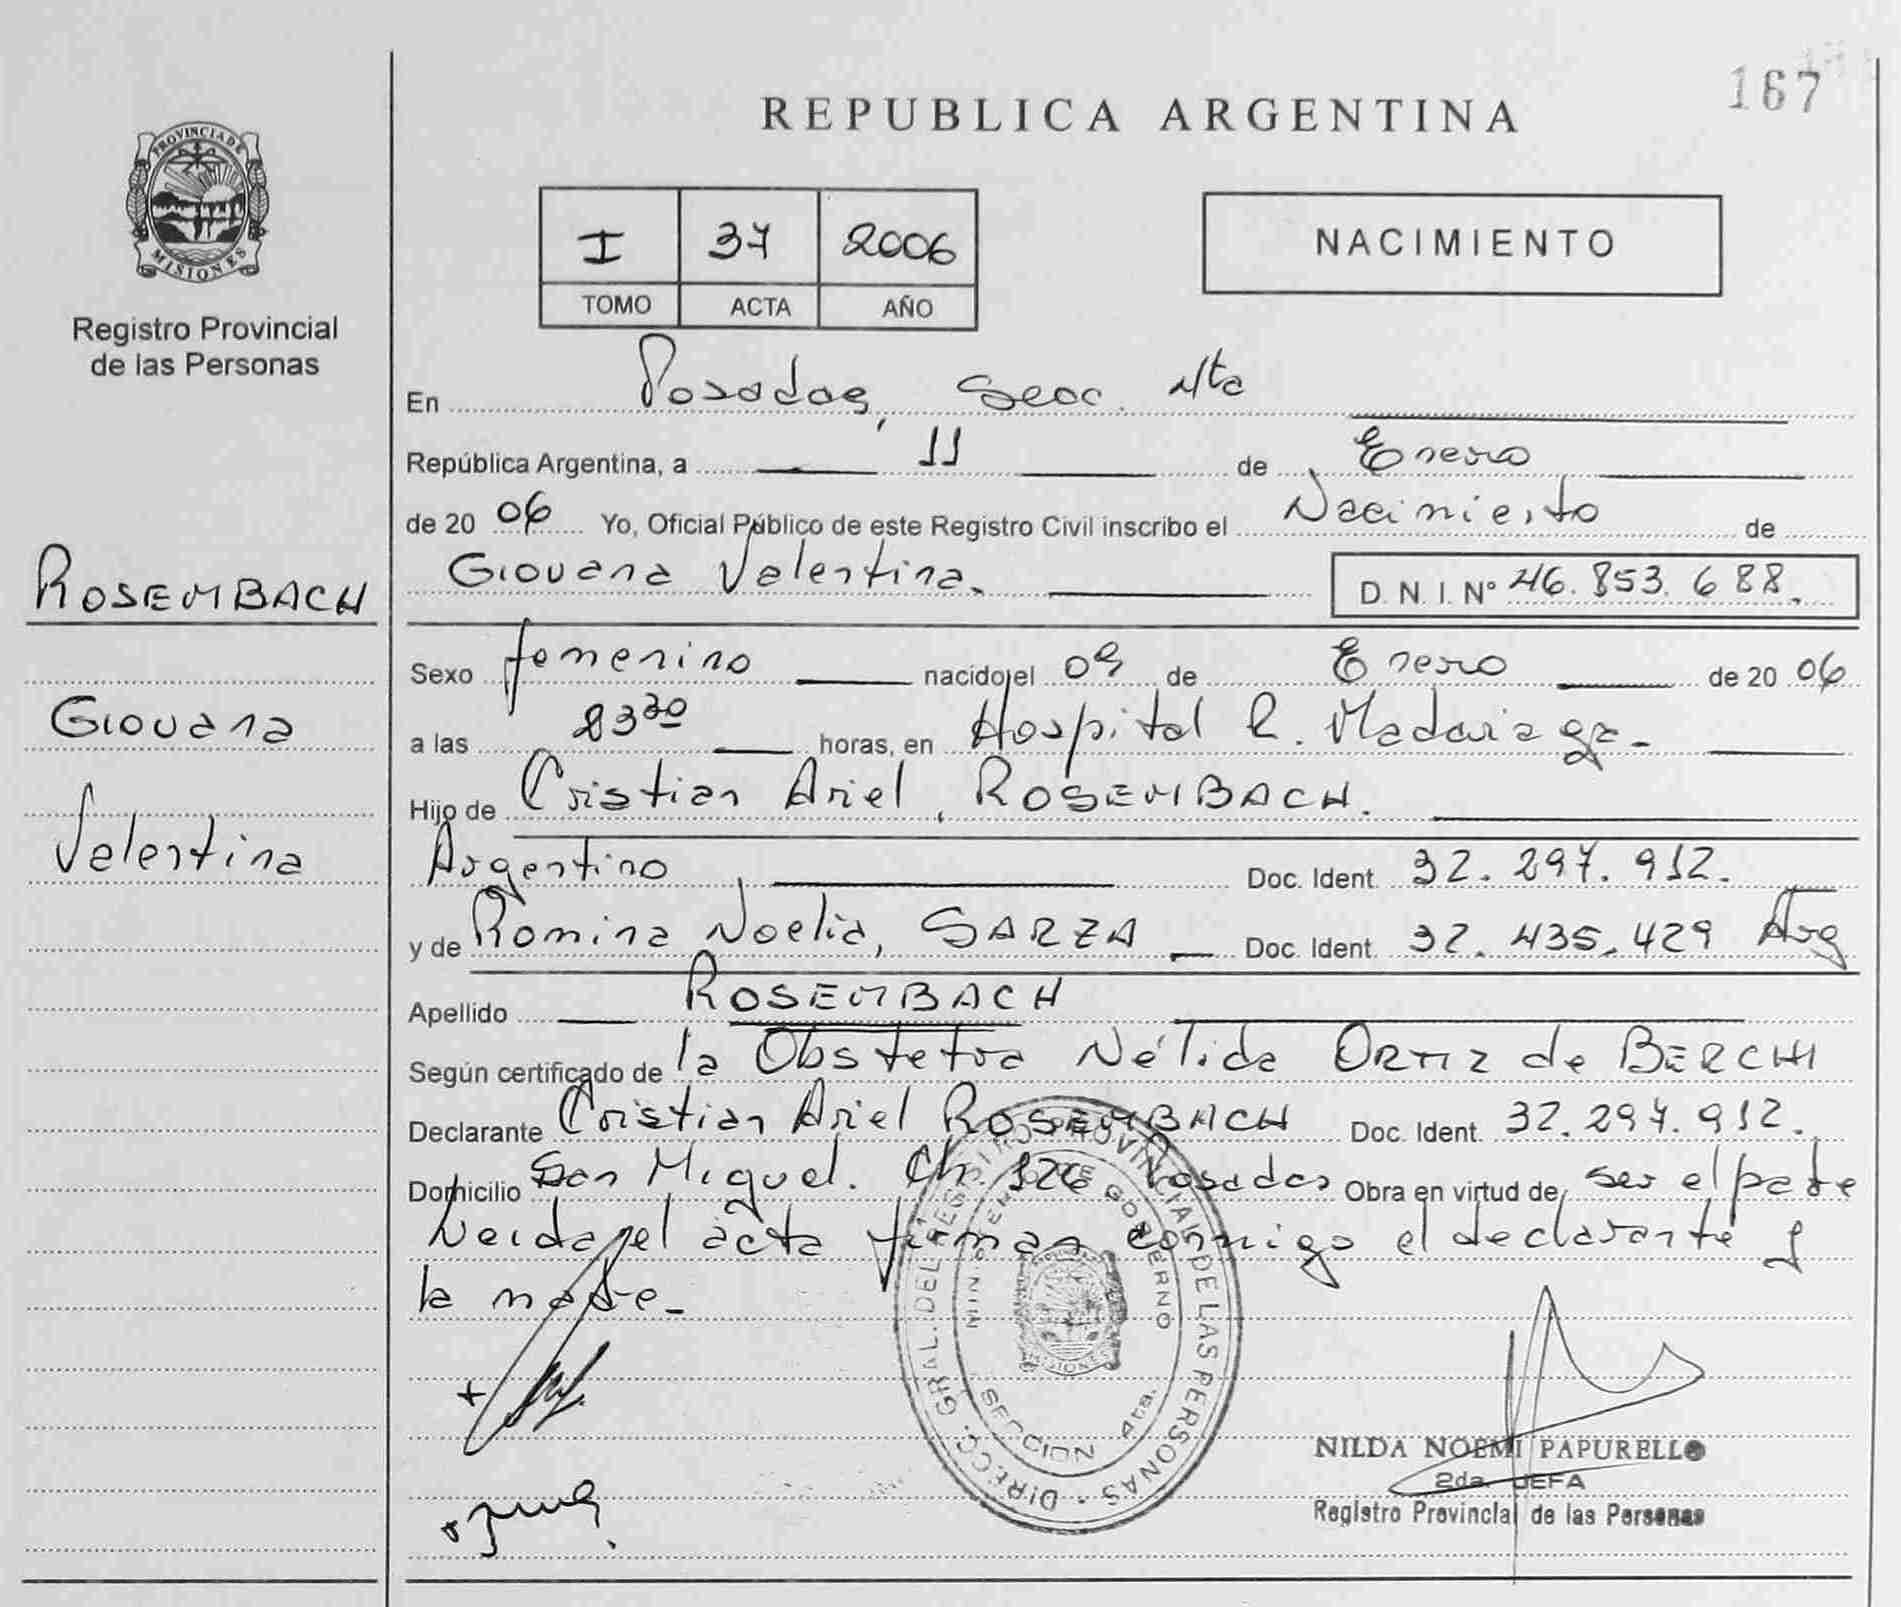 167
REPUBLICA ARGENTINA
PROVINCIA DE
MISIONES
Registro Provincial
de las Personas
I 37 2006
TOMO ACTA AÑO
NACIMIENTO
En Posadas, Secc. 4ta
República Argentina, a 11 de Enero
de 20 06 Yo, Oficial Público de este Registro Civil inscribo el Nacimiento de
Giovana Valentina. D. N. I. Nº 46.853.688.
ROSEMBACH
Giovana
Valentina
Sexo femenino nacido el 09 de Enero de 20 06
a las 23 30 horas, en Hospital R. Madariaga.
Hijo de Cristian Ariel, ROSEMBACH.
Argentino Doc. Ident. 32.297.912.
y de Romina Noelia, SARZA Doc. Ident. 32.435.429 Arg
Apellido ROSEMBACH
Según certificado de la Obstetra Nélida ORTIZ de BERCHI
Declarante Cristian Ariel ROSEMBACH Doc. Ident. 32.297.912.
Domicilio San Miguel. Ch. 126 Posadas Obra en virtud de ser el padre
Leida el acta firman conmigo el declarante y
la madre.
DIRECC. GRAL. DEL REGISTRO PROVINCIAL DE LAS PERSONAS
MINISTERIO DE GOBIERNO
SECCION 4ta.
MISIONES
NILDA NOEMI PAPURELLO
2da JEFA
Registro Provincial de las Personas